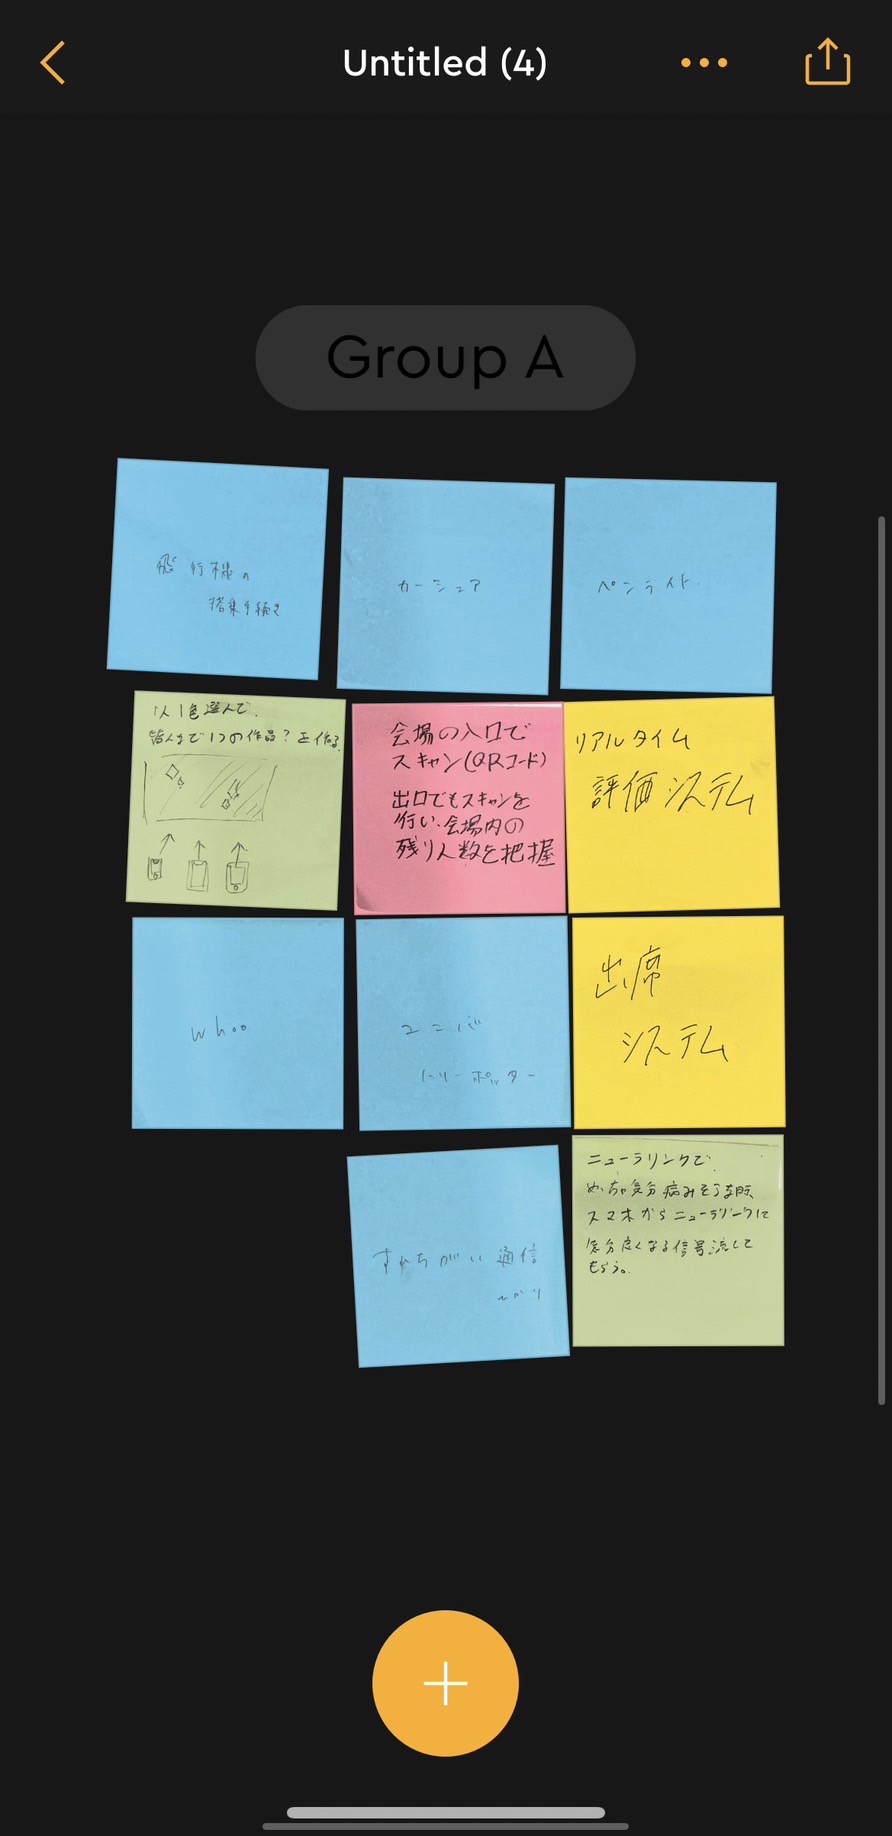 Untitled (4)
Group A
飛行機の
搭乗手続き
カーシェア
ペンライト
1人1色選んで、
皆んなで1つの作品?を作る
会場の入口で
スキャン(QRコード)
出口でもスキャンを
行い、会場内の
残り人数を把握
リアルタイム
評価システム
whoo
ユニバ
ハリーポッター
出席
システム
すれちがい通信
ニューラリンクで
めっちゃ気分病みそうな時、
スマホからニューラリンクに
気分良くなる信号流して
もらう。